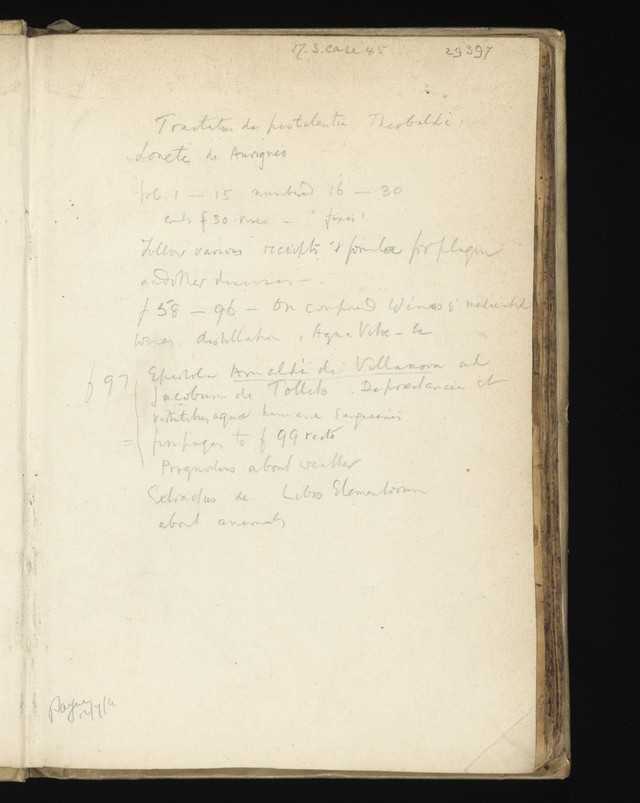 29397
Tractatus de pestilentia Theobaldi
Loneti de Aurigneo
fol 1 — 15 numbered 16 — 30
ends f 30 verso —
Follow various receipts & formulae for plague
and other diseases —
f 58 — 96 — On compound Wines & medicated
wines, distillation, Aqua Vitae — &c
f 97 Epistola Arnaldi de Villanova ad
Jacobum de Tolleto. De praestancia et
virtutibus aquae humani sanguinis
pages to f 99 recto
Prognosis about weather
Extractus de Libro Elementorum
about animals